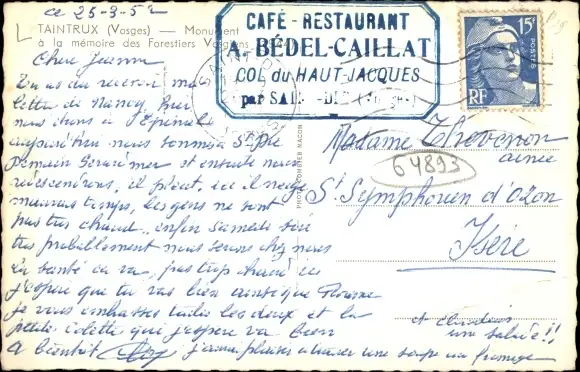 ce 25-3-52
TAINTRUX (Vosges) — Monument
à la mémoire des Forestiers Vosgiens
CAFÉ - RESTAURANT
A. BÉDEL-CAILLAT
COL du HAUT-JACQUES
par SAINT-DIÉ (Vosges)
15F
POSTES
RF
Chère Jeanne
Tu as du recevoir ma
lettre de Nancy, hier
nous étions à Epinal
aujourd'hui nous sommes à St Dié
Demain Gerardmer et ensuite nous
redescendrons, il pleut, ici il neige
mauvais temps, les gens ne sont
pas très chaud, enfin samedi soir
très probablement nous serons chez nous
La santé ça va, pas trop chaud
j'espère que tu vas bien ainsi que
je vous embrasse toutes les deux et la
petite Colette qui j'espère va bien
A bientôt
j'aurai plaisir à manger une soupe au fromage
et
une salade!!
PHOTO COMBIER MACON
Madame Thevenon
ainée
64893
St Symphorien d'Ozon
Isère